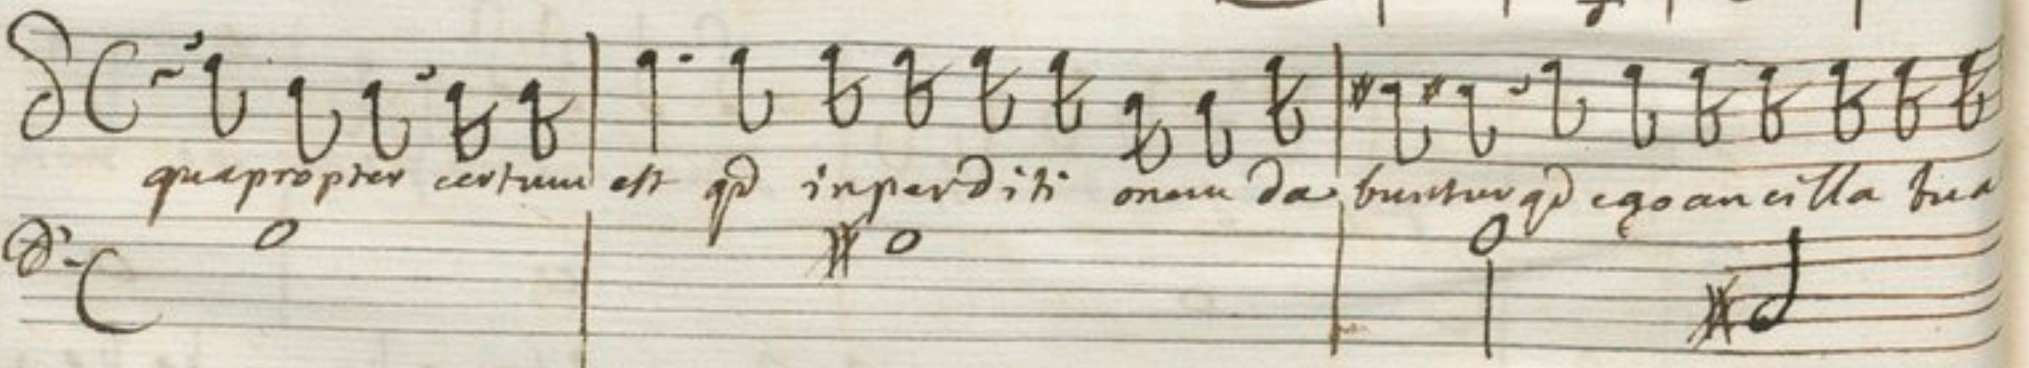 quapropter certum est qd in perditi onem da buntur qd ego ancilla tua